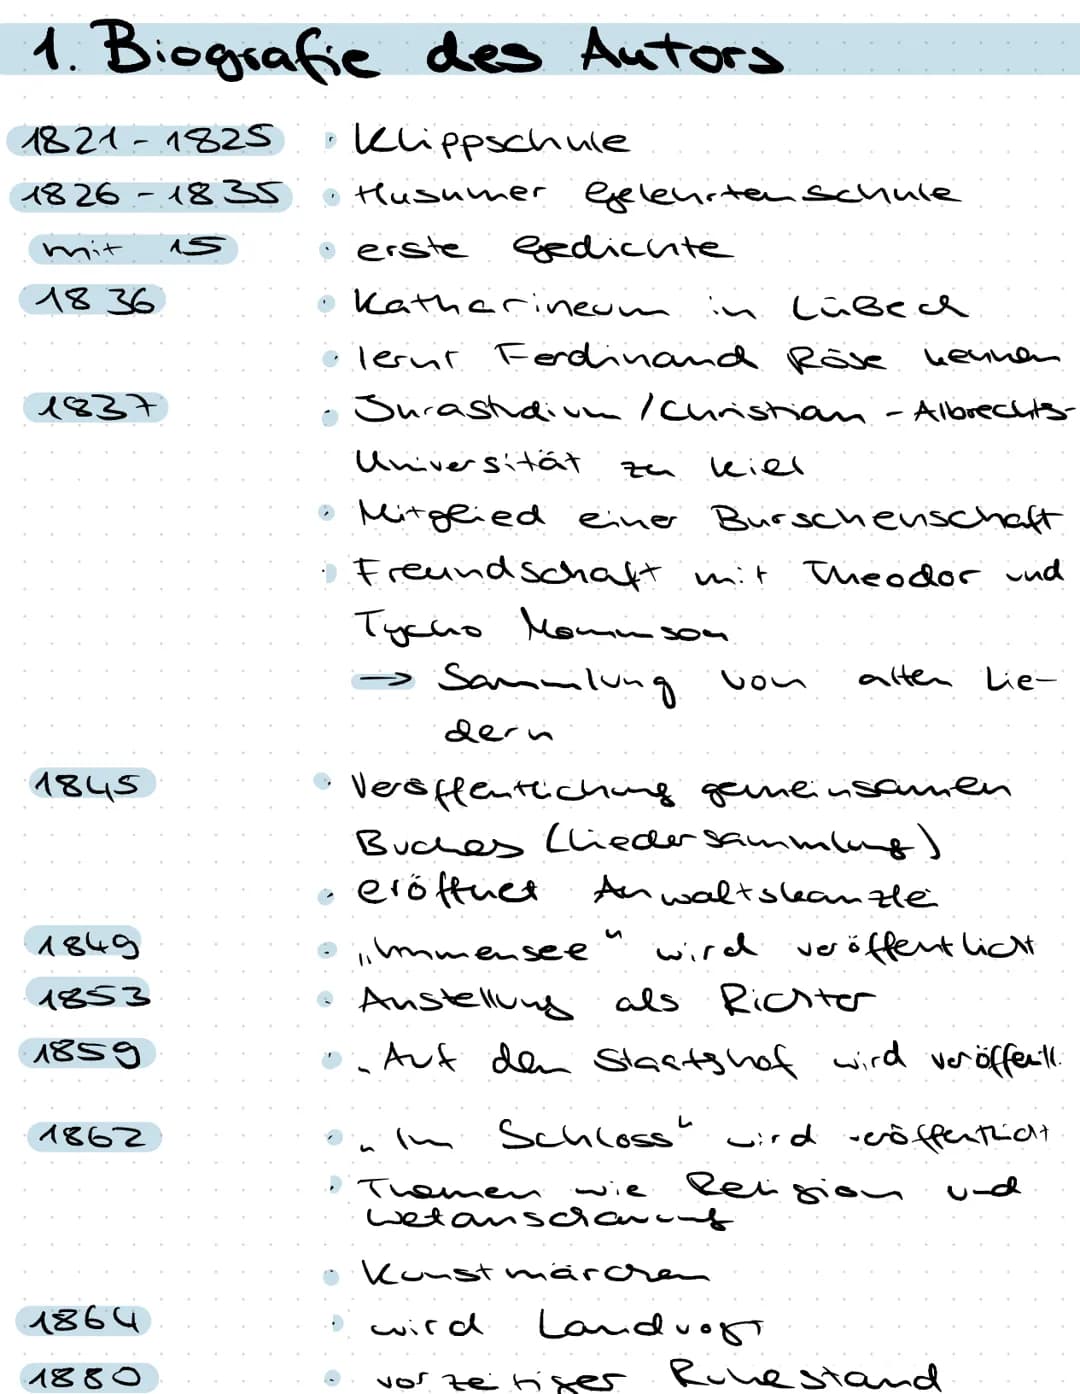 1. Biografie des Autors
1821 - 1825 • Klippschule
1826 - 1835 • Husumer Gelehrtenschule
mit 15 • erste Gedichte
1836 • Katharineum in Lübeck
• lernt Ferdinand Röse kennen
1837 • Jurastudium / Christian - Albrechts-
Universität zu Kiel
• Mitglied einer Burschenschaft
• Freundschaft mit Theodor und
Tycho Mommson
→ Sammlung von alten Lie-
dern
1845 • Veröffentlichung gemeinsamen
Buches (Liedersammlung)
• eröffnet Anwaltskanzlei
1849 • „Immensee“ wird veröffentlicht
1853 • Anstellung als Richter
1859 • „Auf dem Staatshof wird veröffentl.
1862 • „Im Schloss“ wird veröffentlicht
• Themen wie Religion und
Wetanschauung
• Kunstmärchen
1864 • wird Landvogt
1880 • vorzeitiger Ruhestand